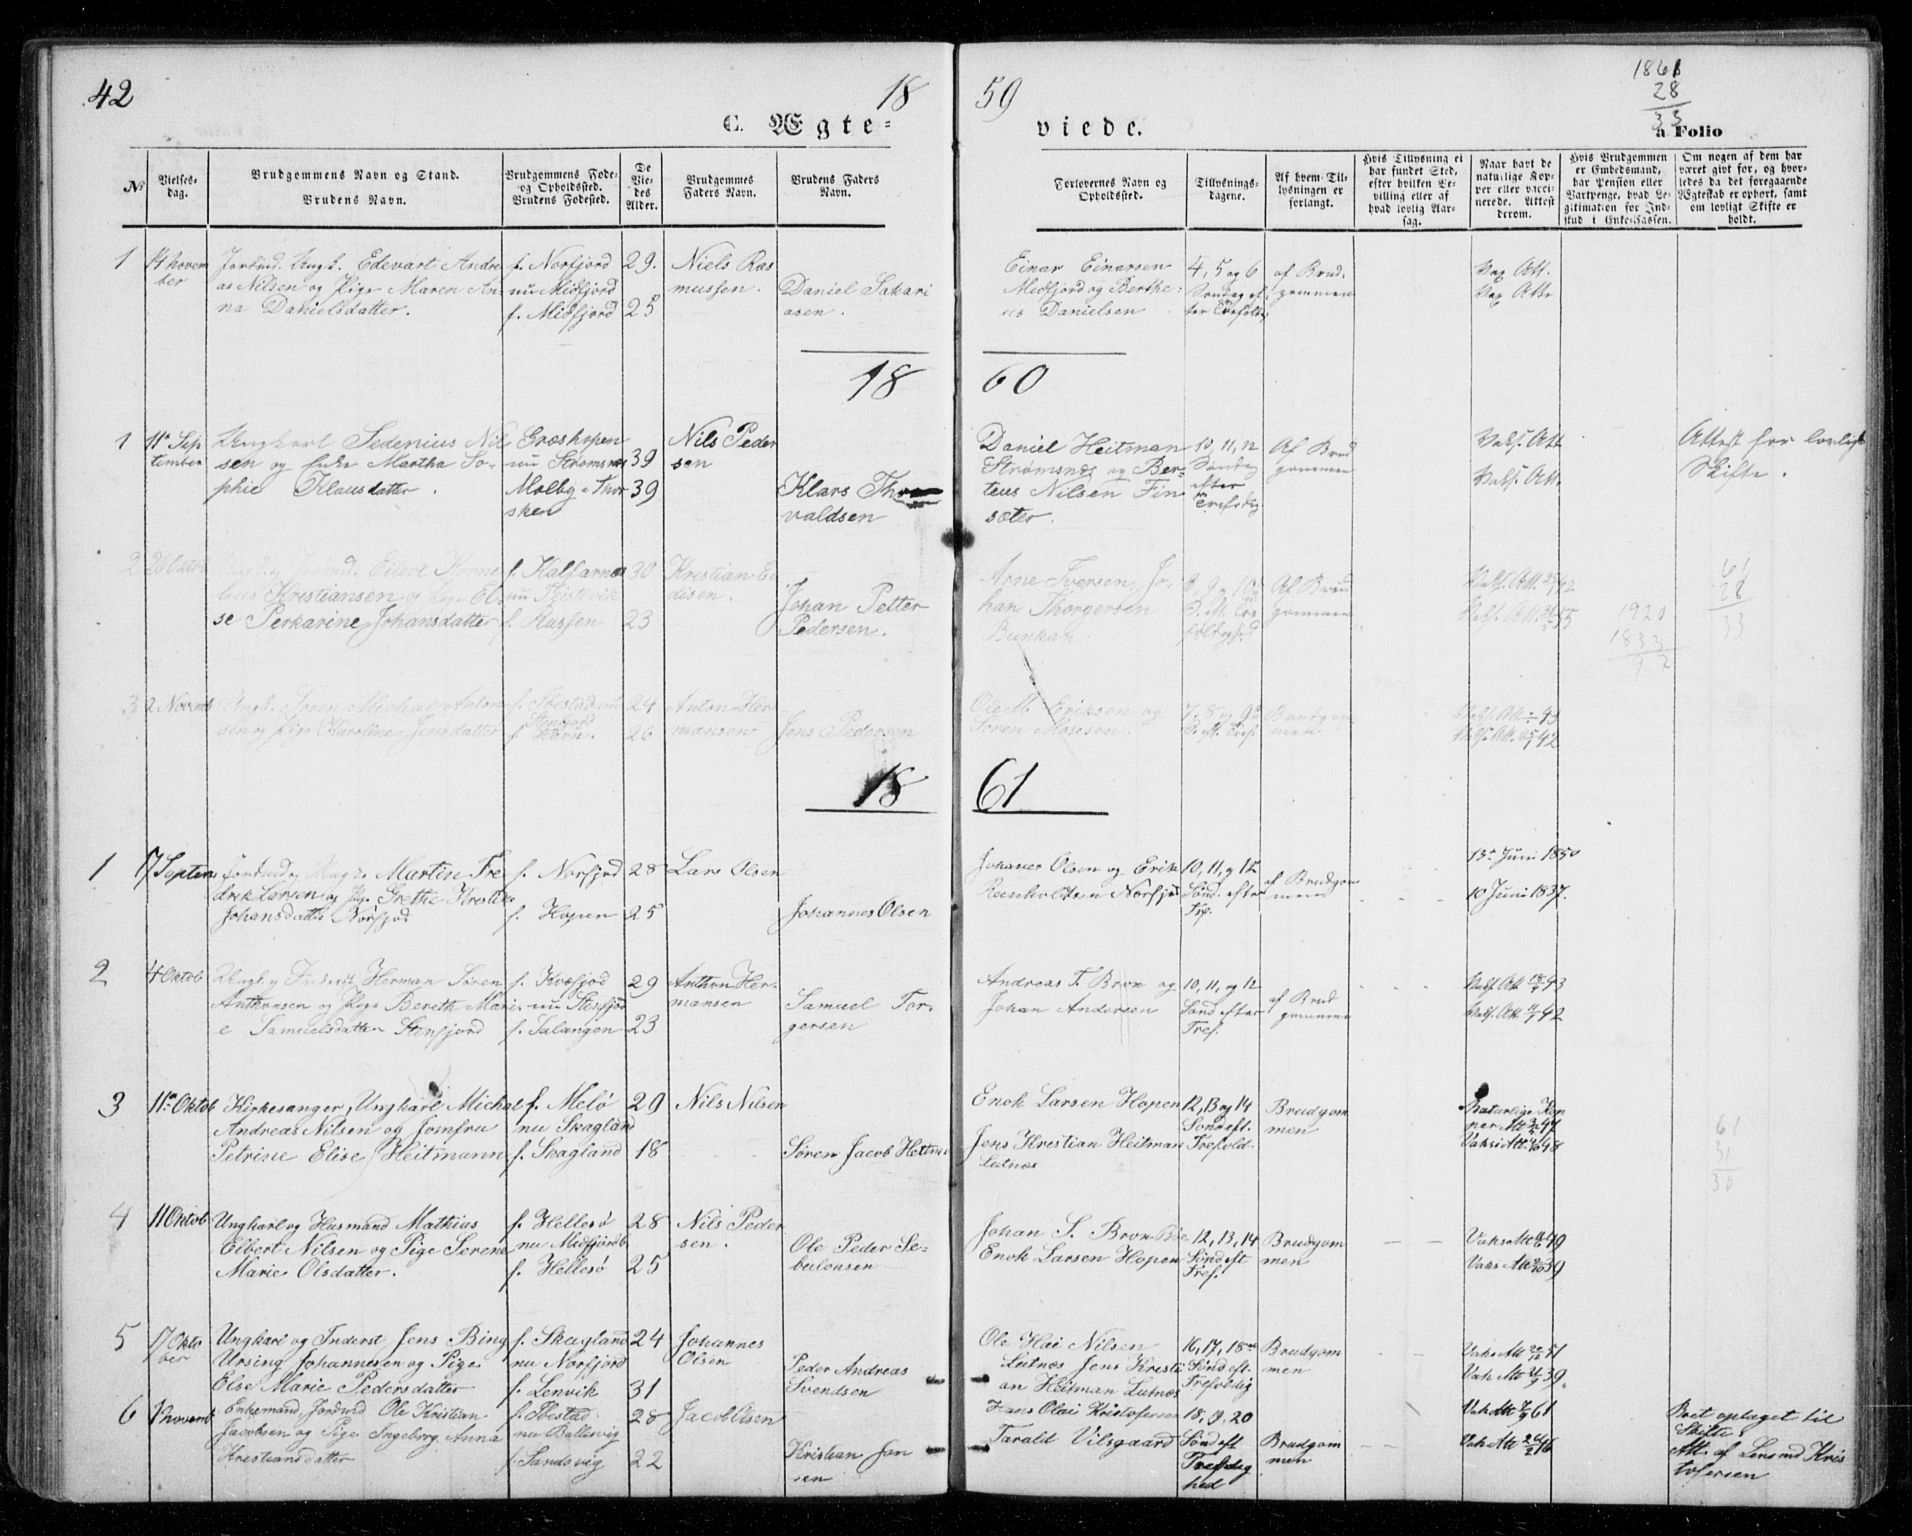 42
18
59
1861
28
33
C. Ægte=
viede.
a Folio
No
Vielses-
dag.
Brudgommens Navn og Stand.
Brudens Navn.
Brudgommens Føde-
og Opholdssted.
Brudens Fødested.
De
Vie-
des
Alder.
Brudgommes
Faders Navn.
Brudens Faders
Navn.
Forlovernes Navn og
Opholdssted.
Tillysnings-
dagene.
Af hvem Til-
lysningen er
forlangt.
Hvis Tillysning ei
har fundet Sted,
efter hvilken Be-
villing eller af
hvad lovlig Aar-
sag.
Naar havt de
naturlige Kop-
per eller vacci-
nerede. Attest
derom.
Hvis Brudgommen
er Embedsmand,
har Pension eller
Vartpenge, hvad Le-
gitimation for Ind-
skud i Enke-Cassen.
Om nogen af dem har
været givt før, og hvor-
ledes da det foregaaende
Ægteskab er ophørt, samt
om lovligt Skifte er
holdt.
1
14 novem
ber
Edevart Andre
as Nilsen og Pige Maren An-
na Danielsdatter.
f. Norfjord
nu Midfjord
f. Midfjord
29.
25
Niels Ras
mussen.
Daniel Sakari
asen.
Einar Einarsen
Medfjord og Berthe
us Danielsen
4, 5 og 6
Søndag ef
ter Trefold.
af Brud-
gommen
Vax Att.
Vax Atte
18
60
1
11te Sep
tember
Ungkarl Sedenius Nil
sen og Enke Martha So-
phie Klausdatter.
Græshopen
nu Strømsnes
Molby i Thor
sken
39
39
Nils Peder
sen
Klaus Thor
valdsen
Daniel Heitman
Strømsnæs og Ber-
teus Nilsen Fin
sæter.
10, 11, 12
Søndag
efter
Trefoldg
Af Brud
gommen
Vaks. Att
Vaks. Att.
Attest for lovligt
Skifte.
2
26 Oktob
Eilert Korne
lius Kristiansen og Pige El-
se Perkarine Johansdatter
f. Kalfarnes
f. Russen
30
23
Kristian E
disen.
Johan Petter
Pedersen.
Arne Iversen, Jo-
han Thorgersen
Bunkan
8, 9 og 10de
S. M. Tre
foldighed
Af Brud
gommen
Vaks. Att. 42
Vaks. Att. 35
1920
1833
92
61
28
33
3
2 Novemb
Ungk. Søren Michal Anton
sen og Pige Karoline Jensdatter
f. Ibestad nu
Stensfjord
f. Havn.
24
26
Anton Her
mansen
Jens Pedersen
Ole M. Eriksen og
Søren Mosesen.
7, 8 og 9de
S. M. Tref.
Brudgom
men
Vaks. Att. 43
Vaks. Att. 42
18
61
1
17 Septem
Martin Fre
drik Larsen og Pige Grethe Kirstine
Johansdatter Norfjod
f. Norfjord
f. Hopen
28
25
Lars Olsen
Johannes Olsen
Johanes Olsen og Erik
Reinholdtsen Norfjod
10, 11, og 12
Sønd. efter
Tref.
af Brudgom
mend
13de Juni 1850
10 Juni 1837.
2
4 Oktob
Herman Søren
Anthonsen og Pige Bereth Mari
e Samuelsdatter Stensfjord
f. Kvæfjod
nu Stensfjod
f. Salangen
29
23
Anthon Her-
mansen
Samuel Tor-
gersen
Andreas T. Bron og
Johan Andersen
10, 11, og 12
Sønd efter
Tref.
af Brud
gommen
Vaks. Att 43
Vaks. Att 42
3
11te Oktob
Kirkesanger, Ungkarl Michal
Andreas Nilsen og Jomfru
Petrine Elise Heitmann
f. Melø
nu Skagland
f. Skagland
29
18
Nils Nilsen
Søren Jacob Heitman
Enok Larsen Hopen
Jens Kristian Heitman
Lutnæs
12, 13 og 14
Sønd eft.
Trefold.
Brudgom
men
Naturlige Kop
per Att 47
Vaks Att. 48
61
31
30
4
11 Oktob
Ungkarl og Husmand Mathias
Elbert Nilsen og Pige Serene
Marie Olsdatter.
f. Hellesø
nu Midfjordb
f. Hellesø
28
25
Nils Peder
sen.
Ole Peder Se-
bulonsen
Johan S. Bron Bøe
Enok Larsen Hopen
12, 13, 14
Sønd eft
Tref.
Brudgom
men
Vaks Att 49
Vaks Att 39
5
17 Okto
ber
Ungkarl og Inderst Jens Bing
Ursing Johannesen og Pige
Else Marie Pedersdatter
f. Skagland
nu Norfjord
f. Lenvik
24
31
Johannes
Olsen
Peder Andreas
Svendsen
Ole Hai Nilsen
Lutnæs Jens Kristi
an Heitman Lutnæs
16, 17, 18de
Sønd eft.
Trefoldig
Brudgom
men
Vaks Att 41
Vak Att 39.
6
1 novemb
Enkemand, Jordbrd Ole Kristian
Jacobsen og Pige Ingeborg Anna
Kristiansdatter
f. Ibestad
nu Ballesvig
f. Sandsvig
28
22
Jacob Olsen
Kristian Jon
sen
Hans Olai Kristofersen
Taralt Vilsgaard
18, 19, 20
Sønd eft
Trefoldig
hed
Brudgom
men
Vak Att 61
Vak Att 46
Bøet optaget til
Skifte.
Att. af Lensmd Kris
tofersen